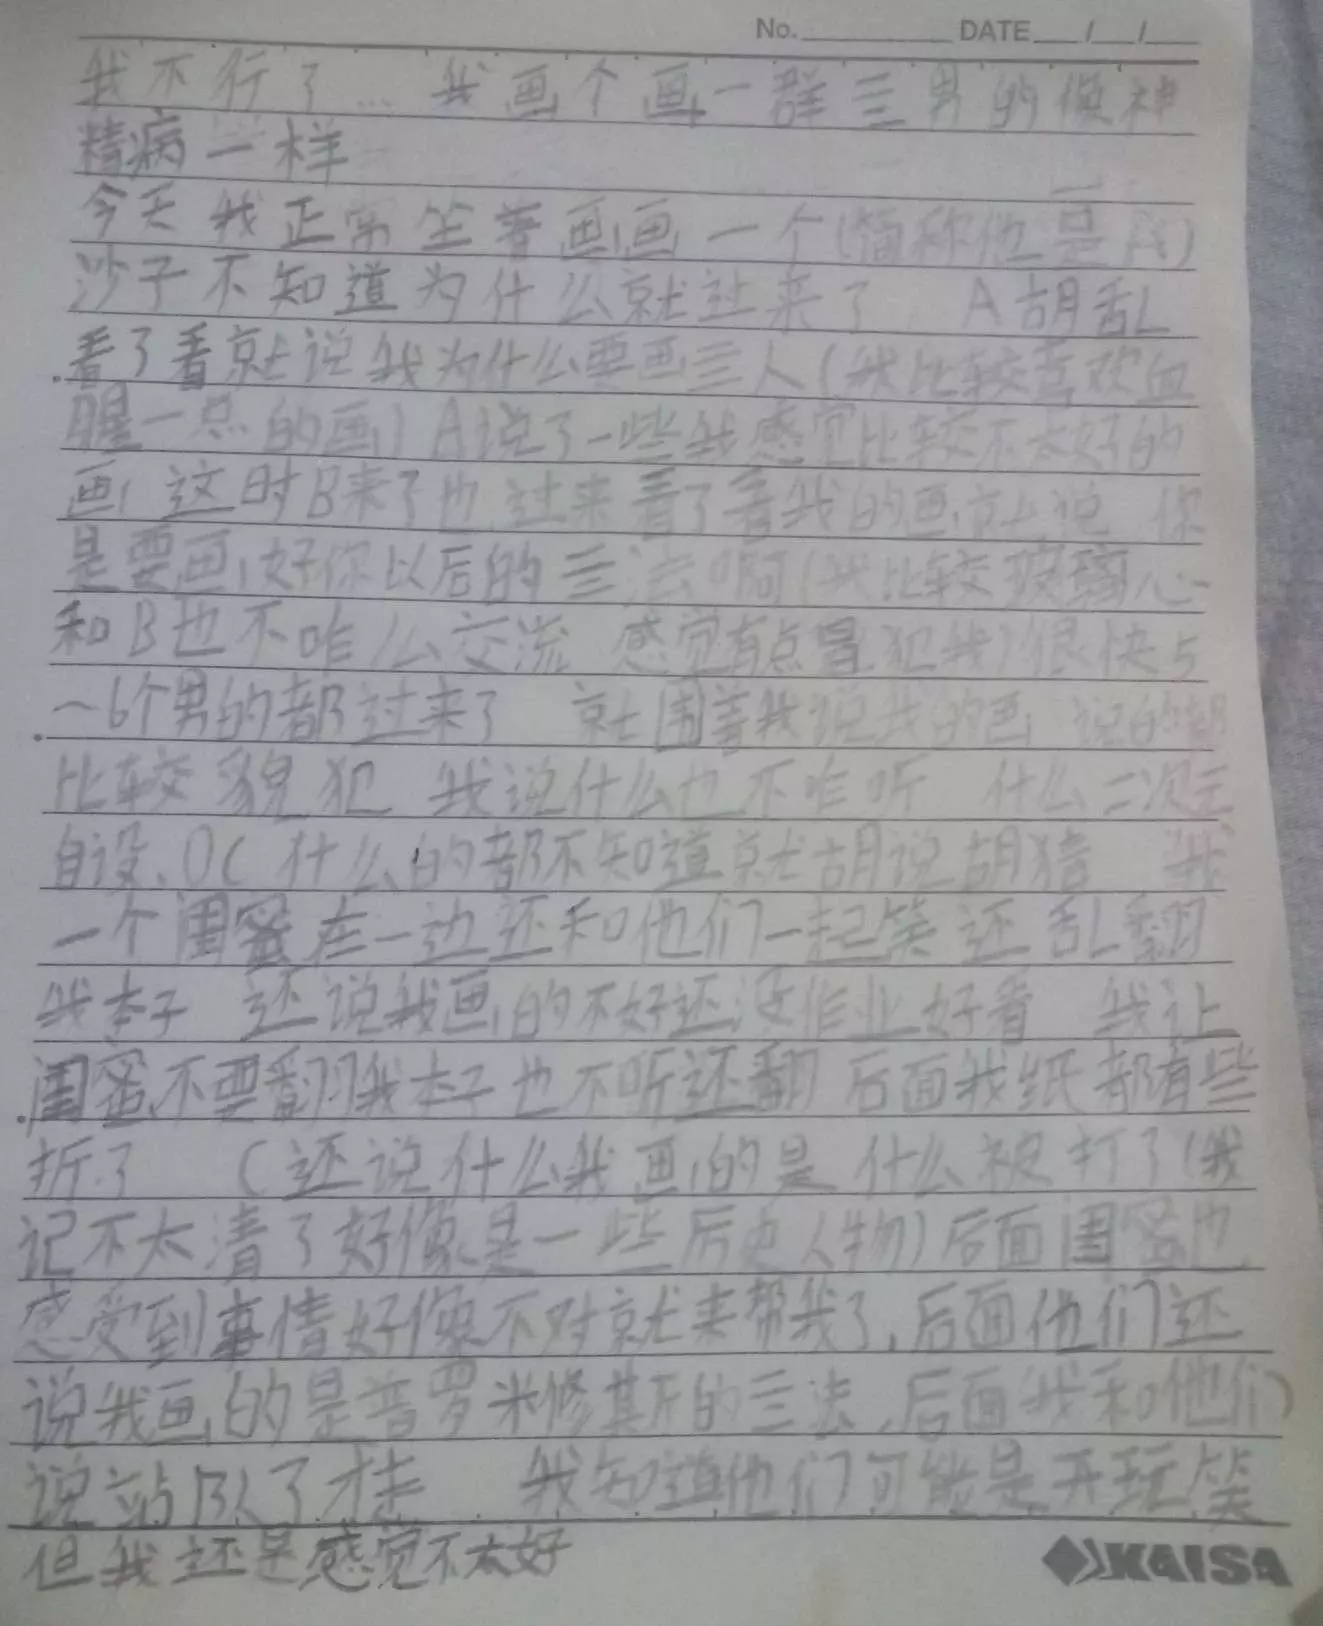 No. DATE / /
我不行了...我画个画一群三男的像神
精病一样
今天我正常坐着画画一个(简称他是A)
沙子不知道为什么就过来了 A胡乱
看了看就说我为什么要画三人(我比较喜欢血
腥一点的画)A说了一些我感觉比较不太好的
画,这时B来了也过来看了看我的画就说 你
是要画好你以后的三法啊(我比较玻璃心
和B也不咋么交流 感觉有点冒犯我)很快5
~6个男的都过来了 就围着我说我的画 说的都
比较貌犯 我说什么也不咋听 什么二次元
自设、OC什么的都不知道就胡说胡猜 我
一个闺蜜在一边还和他们一起笑还乱翻
我本子 还说我画的不好还没作业好看 我让
闺蜜不要翻我本子也不听还翻 后面我纸都有些
折了 (还说什么我画的是什么被打了(我
记不太清了好像是一些历史人物)后面闺蜜也
感受到事情好像不对就来帮我了,后面他们还
说我画的是普罗米修斯的三法,后面我和他们
说站队了才走 我知道他们可能是开玩笑
但我还是感觉不太好
KAISA